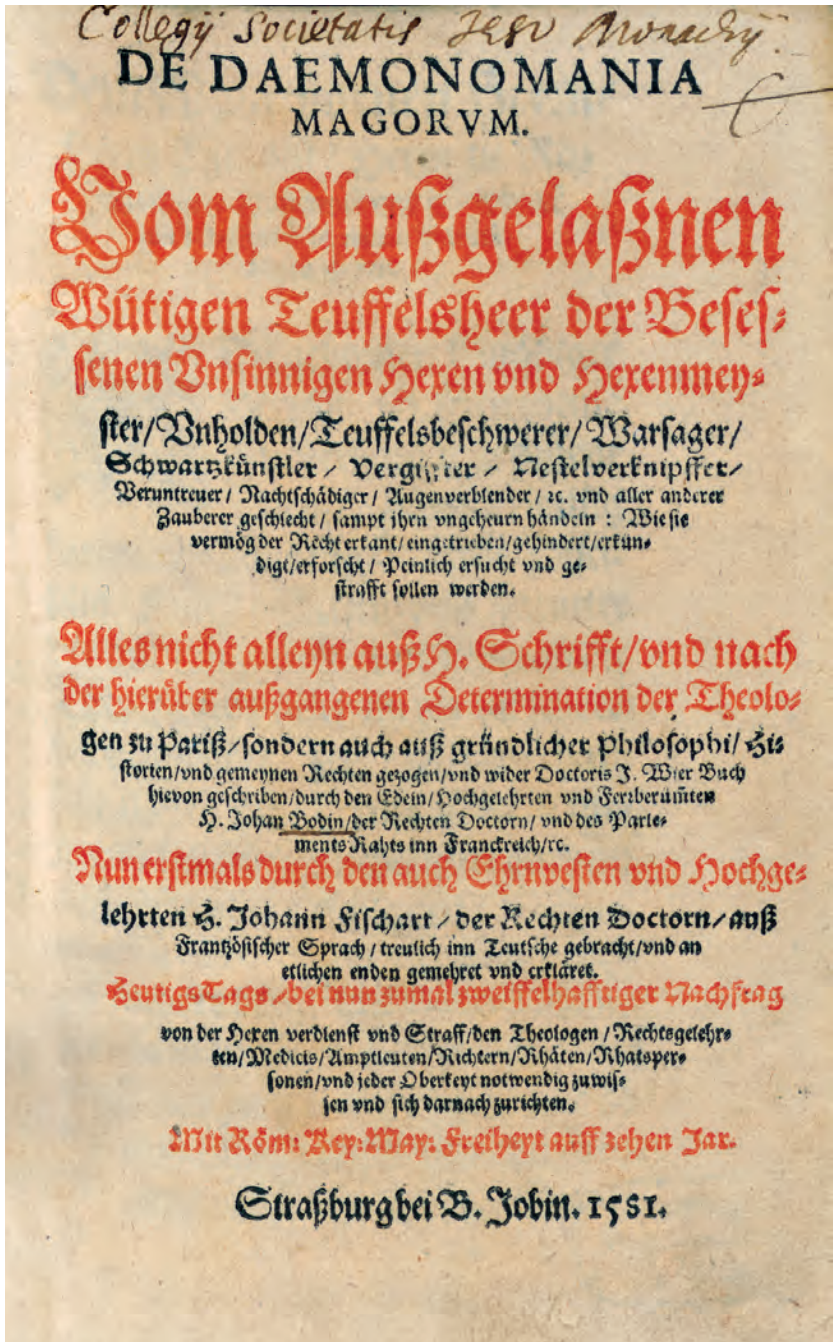 Collegij Societatis Jesv Monachij.
DE DAEMONOMANIA
MAGORVM.
Vom Außgelaßnen
Wütigen Teuffelsheer der Beses⸗
senen Vnsinnigen Hexen vnd Hexenmey⸗
ster/Vnholden/Teuffelsbeschwerer/Warsager/
Schwartzkünstler/Vergiffter/Nestelverknipffer/
Veruntreuer/Nachtschädiger/Augenverblender/ꝛc. vnd aller anderer
Zauberer geschlecht/sampt ihrn vngeheurn händeln: Wie sie
vermög der Recht erkant/eingetrieben/gehindert/erkun⸗
digt/erforscht/Peinlich ersucht vnd ge⸗
strafft sollen werden.
Alles nicht alleyn auß H. Schrifft/vnd nach
der hierüber außgangenen Determination der Theolo⸗
gen zu Pariß/sondern auch auß gründlicher Philosophi/Hi⸗
storien/vnd gemeynen Rechten gezogen/vnd wider Doctoris J. Wier Buch
hievon geschriben/durch den Edeln/Hochgelehrten vnd Fertberüm̃ten
H. Johan Bodin/der Rechten Doctorn/vnd des Parle⸗
ments Rahts inn Franckreich/ꝛc.
Nun erstmals durch den auch Ehrnvesten vnd Hochge⸗
lehrten H. Johann Fischart/der Rechten Doctorn/auß
Frantzösischer Sprach/treulich inn Teutsche gebracht/vnd an
etlichen enden gemehret vnd erkläret.
Heutigs Tags/bei nun zumal zweiffelhafftiger Nachfrag
von der Hexen verdienst vnd Straff/den Theologen/Rechtsgelehr⸗
ten/Medicis/Amptleuten/Richtern/Rhäten/Rhatsper⸗
sonen/vnd jeder Oberkeyt notwendig zuwis⸗
sen vnd sich darnach zurichten.
Mit Röm: Key: May: Freiheyt auff zehen Jar.
Straßburg bei B. Jobin. 1581.